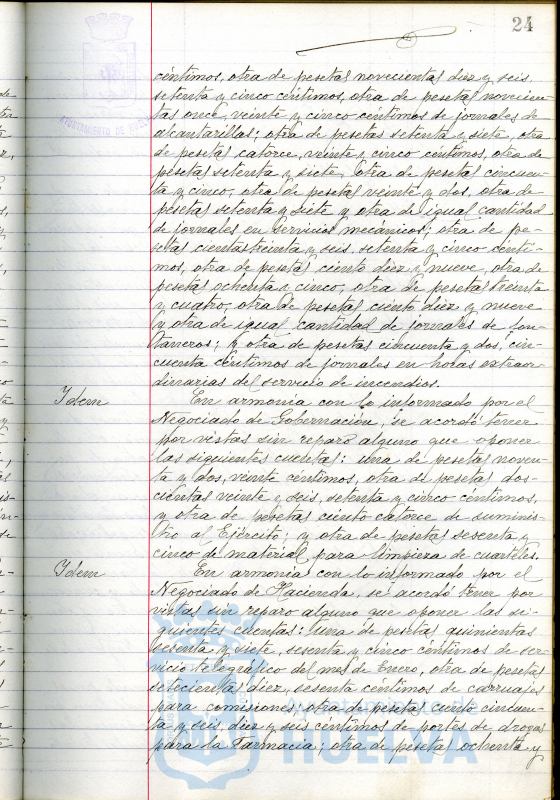 24
AYUNTAMIENTO DE HUELVA
céntimos, otra de pesetas novecientas diez y seis,
setenta y cinco céntimos, otra de pesetas novecien-
tas once, veinte y cinco céntimos de jornales de
alcantarillas; otra de pesetas setenta y siete, otra
de pesetas catorce, veinte y cinco centimos, otra de
pesetas setenta y siete, otra de pesetas cincuen-
ta y cinco, otra de pesetas veinte y dos, otra de
pesetas setenta y siete y otra de igual cantidad
de jornales en servicios mecánicos; otra de pe-
setas cientastreinta y seis, setenta y cinco cénti-
mos, otra de pesetas ciento diez y nueve, otra de
pesetas ochenta y cinco, otra de pesetas treinta
y cuatro, otra de pesetas ciento diez y nueve
y otra de igual cantidad de jornales de fon-
taneros; y otra de pesetas cincuenta y dos, cin-
cuenta céntimos de jornales en horas extraor-
dinarias del servicio de incendios.
Idem
En armonía con lo informado por el
Negociado de Gobernación, se acordó tener
por vistas sin reparo alguno que oponer
las siguientes cuentas: una de pesetas noven-
ta y dos, veinte céntimos, otra de pesetas dos-
cientas veinte y seis, setenta y cinco céntimos,
y otra de pesetas ciento catorce de suminis-
tro al Ejército; y otra de pesetas sesenta y
cinco de material para limpieza de cuarteles.
Idem
En armonía con lo informado por el
Negociado de Hacienda, se acordó tener por
vistas sin reparo alguno que oponer las si-
guientes cuentas: una de pesetas quinientas
sesenta y siete, sesenta y cinco céntimos de ser-
vicio telegráfico del mes de Enero, otra de pesetas
setecientas diez, sesenta céntimos de carruajes
para comisiones, otra de pesetas ciento cincuen-
ta y seis, diez y seis céntimos de portes de drogas
para la Farmacia; otra de pesetas ochenta y
HUELVA